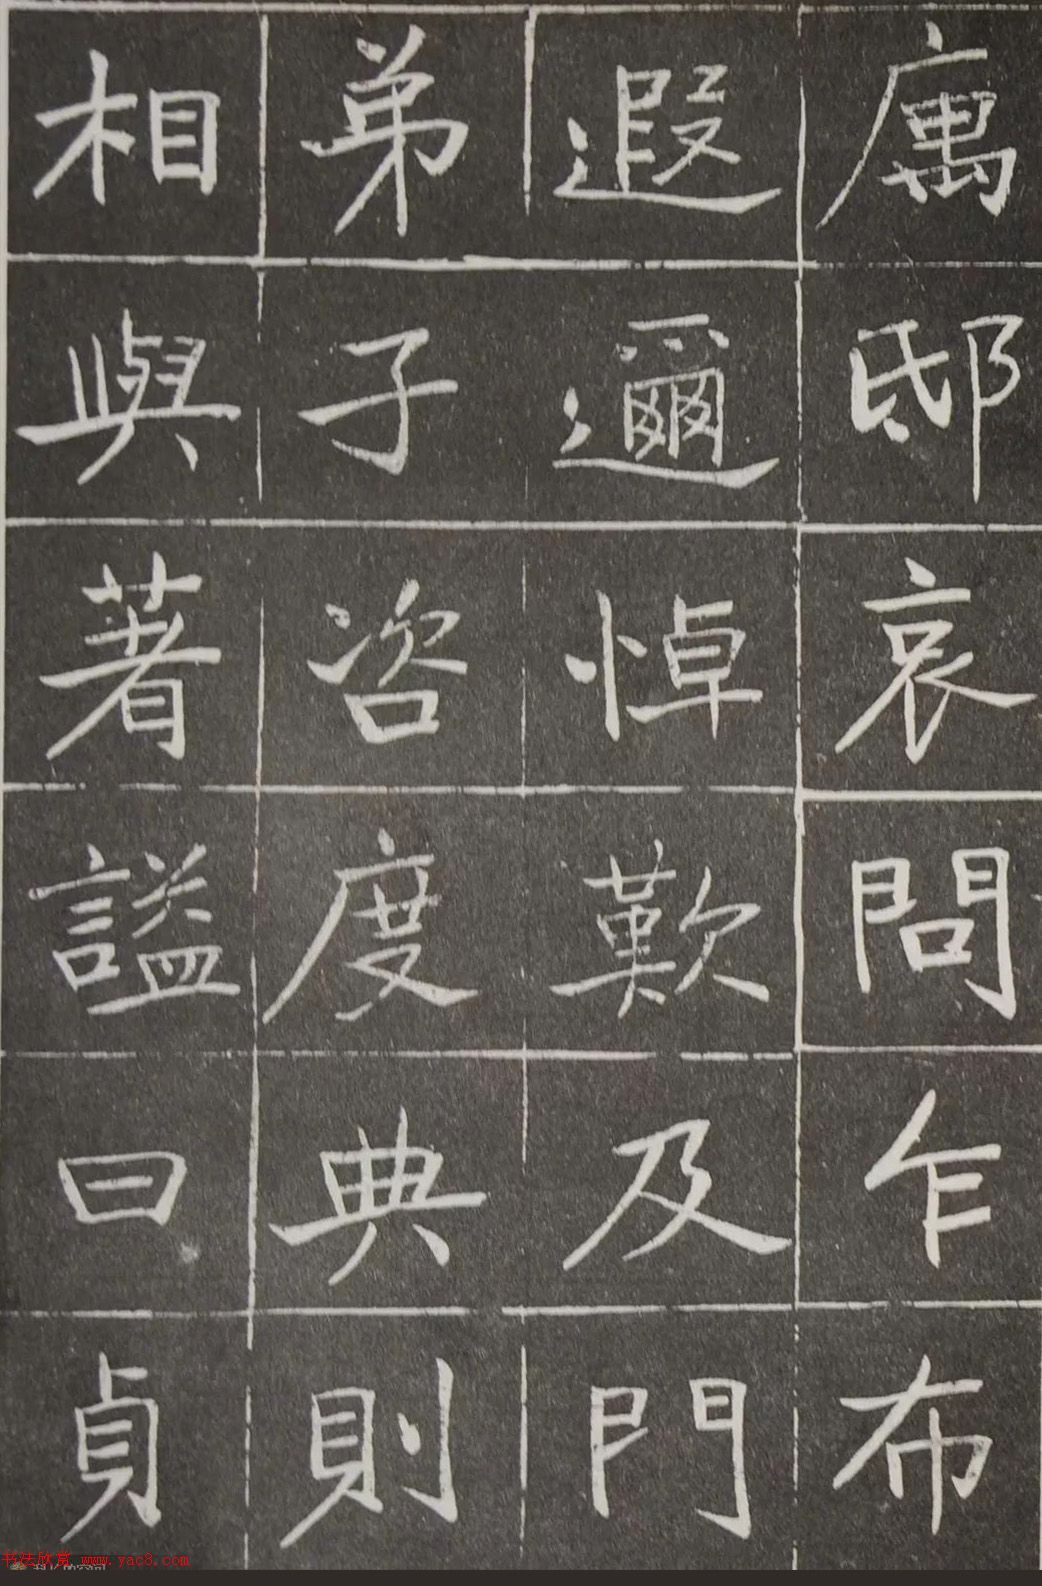 寓邸哀問乍布
遐邇悼歎及門
弟子咨度典則
相與著謚曰貞
书法欣赏 www.yac8.com